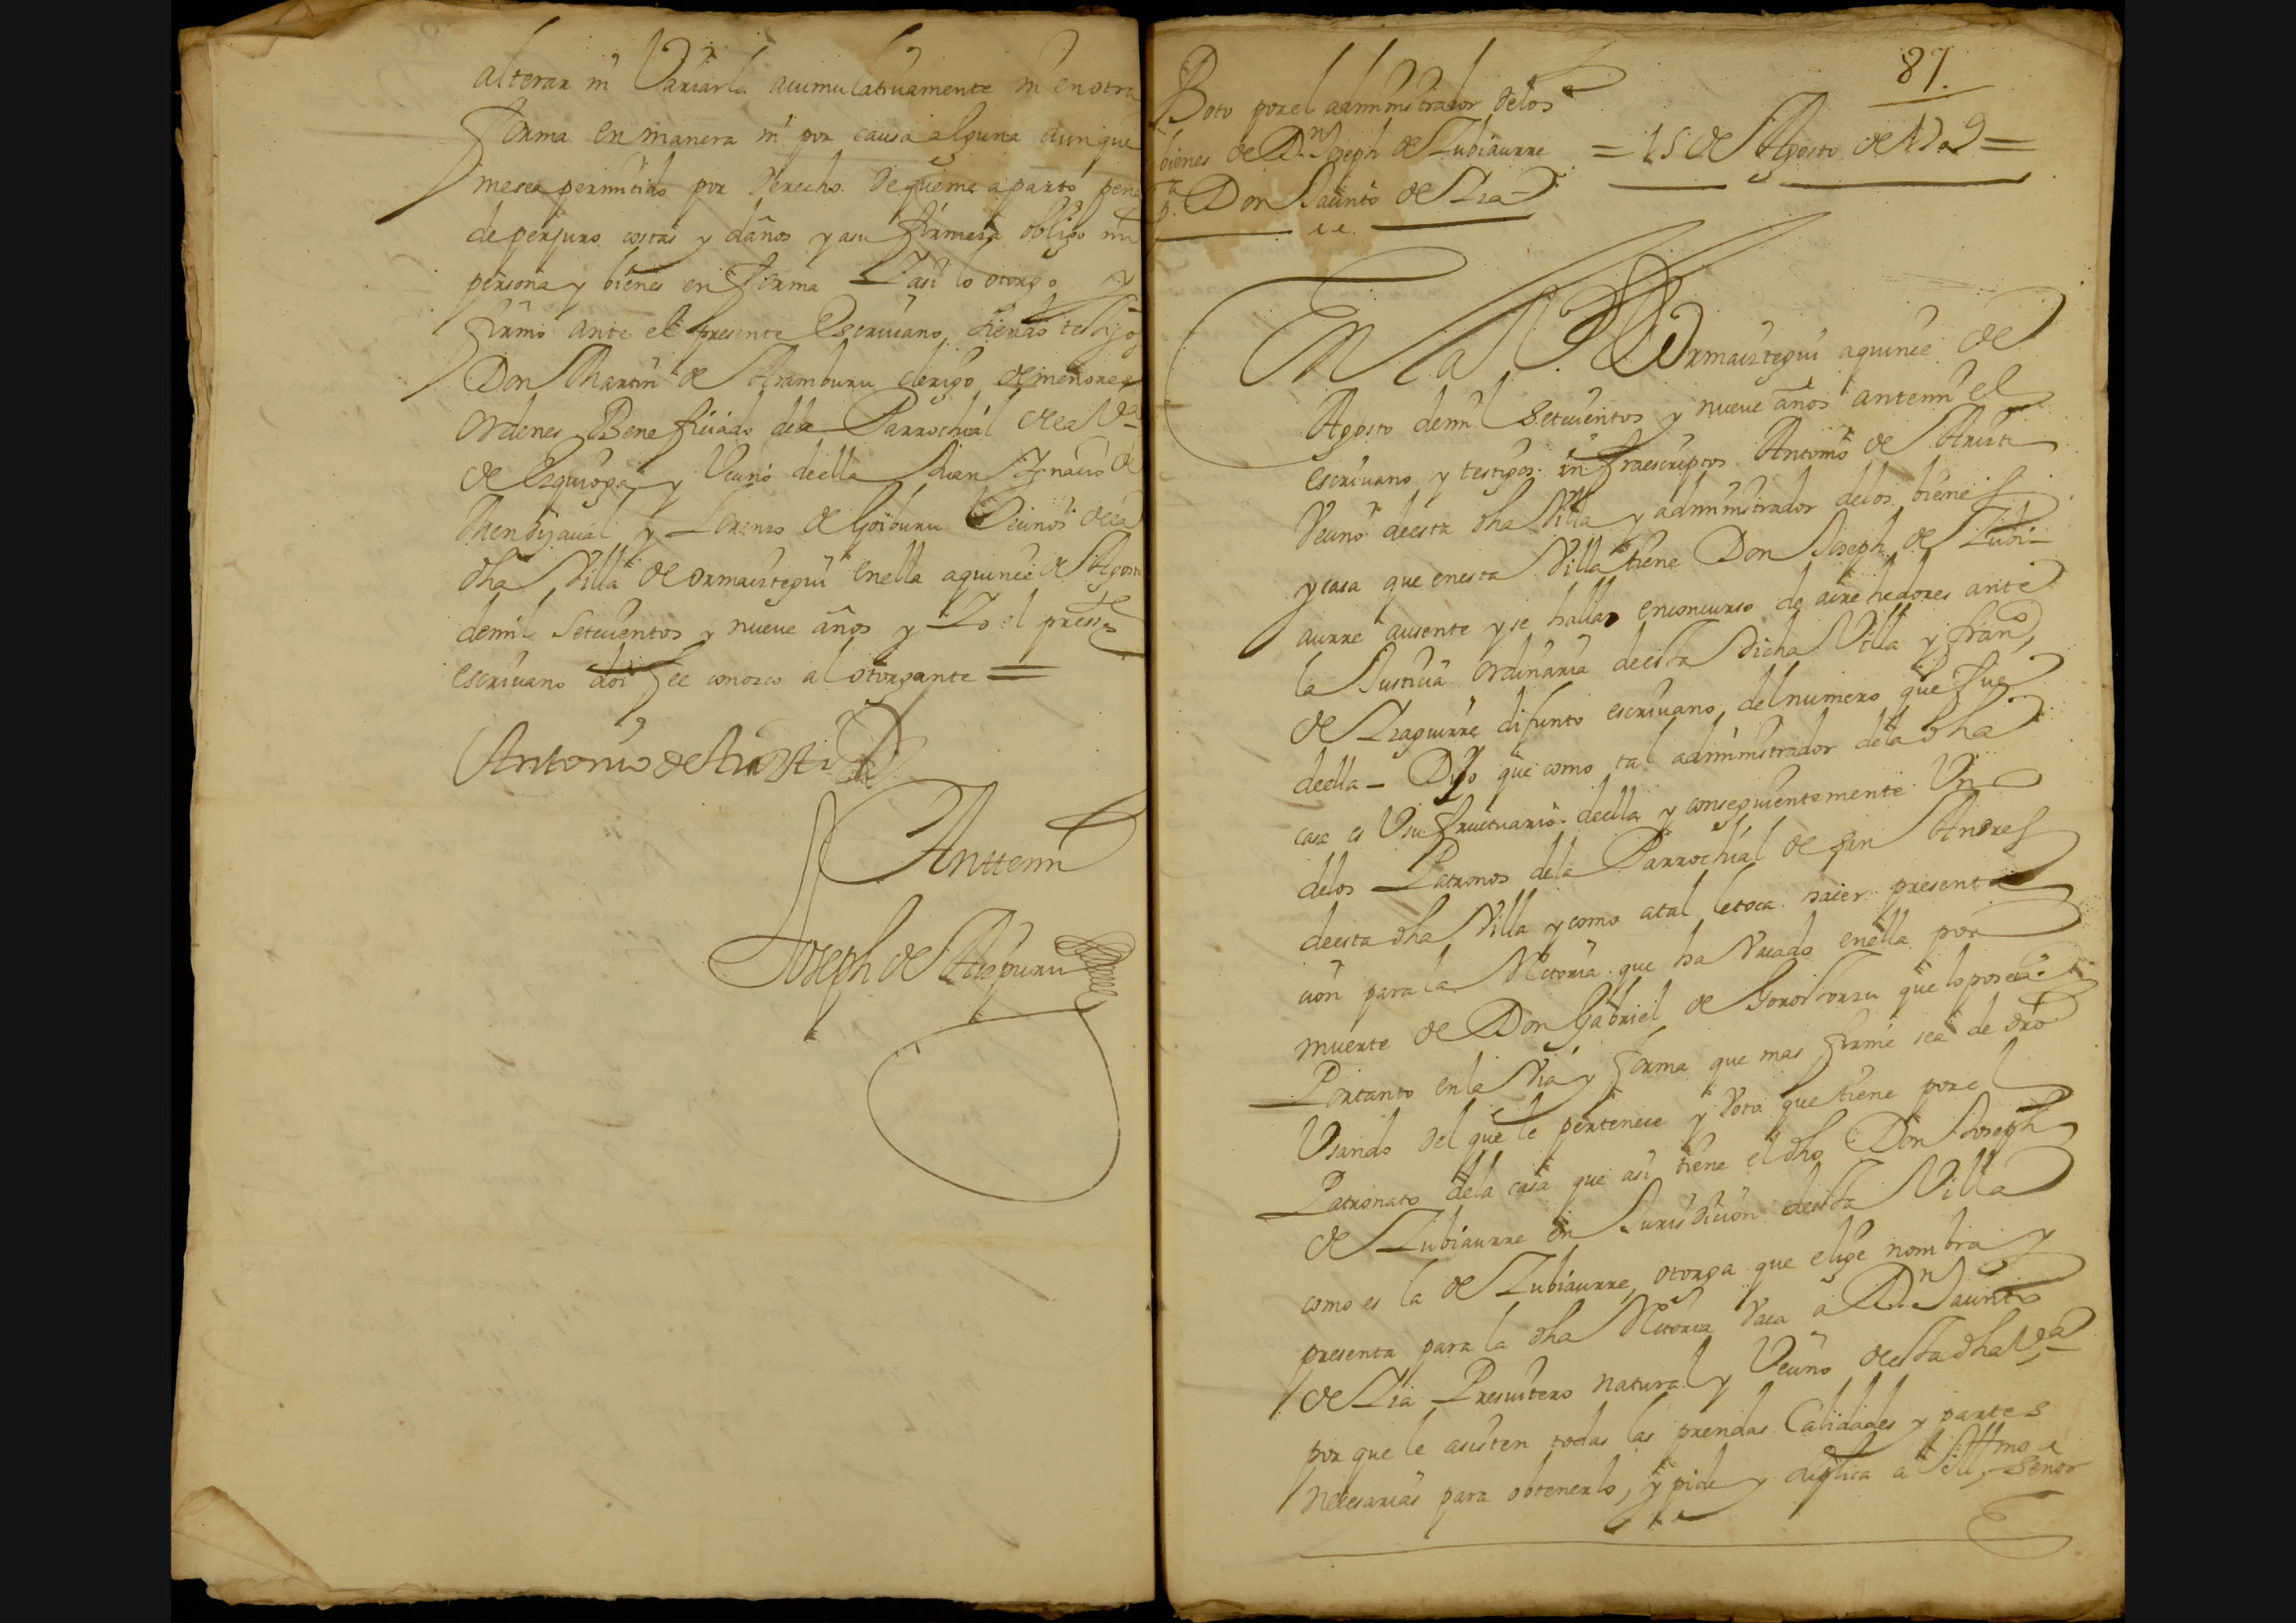 alterar ni Variarla acumulatiuamente ni en otra
forma en manera ni por causa alguna aunque
mesea permitido por derecho de queme aparto pena
de perjuro costas y daños y asu firmeza obligo mi
persona y bienes en forma Y asi lo otorgo y
firmo ante el presente Escriuano siendo testigos
Don Martin de Aramburu clerigo de menores
ordenes Beneficiado dela Parrochial de la Vª
de Ezquioga y Vecino de ella Juan Ignacio de
Mendizaual y Lorenzo de Goiburu Vecinos de la
dha Villa de ormaiztegui en ella a quince de Agosto
de mil Setecientos y nueve años y Yo el press.te
escriuano doi fee conozco al otorgante =
Antonio de Aristi
Anttemi
Joseph de Aizpuru
87.
Boto por el administrador delos
bienes de Dn. Joseph de Zubiaurre = 15 de Agosto de 1709 =
pª. Don Jacinto de Lia
En la Vª de Ormaiztegui a quince de
Agosto de mil Setecientos y nueve años ante mi el
escriuano y testigos infraescriptos Antonio de Aristi
Vecino de esta dha Villa y administrador delos bienes
y casa que en esta Villa tiene Don Joseph de Zubi-
aurre ausente y se halla en concurso de acrehedores ante
la Justicia ordinaria de esta dicha Villa y franco,
de Izaguirre difunto escriuano del numero que fue
de ella - Dijo que como tal administrador dela dha
casa es Vsufructuario de ella y conseguientemente Vn
delos Patronos dela Parrochial de san Andres
de esta dha Villa y como atal le toca hacer presenta
cion para la Retoria que ha Vacado en ella por
muerte de Don Gabriel de Gorostorzu que lo poseia
Portanto en la Via y forma que mas firme sea de dro
Vsando del que le pertenece y Voto que tiene por el
Patronato dela casa que asi tiene el dho Don Joseph
de Zubiaurre en Jurisdicion de esta Villa
como es la de Zubiaurre, otorga que elige nombra y
presenta para la dha Retoria Vaca a Dn. Jacinto
de Lia Presuitero natural y Vecino de esta dha Vª
por que le asisten todas las prendas Calidades y partes
necesarias para obtenerlo, y pide y suplica a Ill.mo Señor